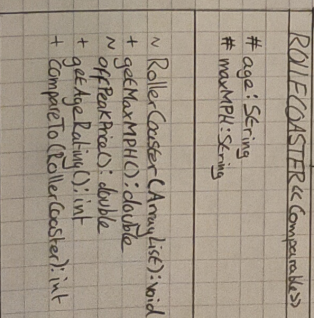 ROLLECOASTER<<Comparable>>
# age: String
# maxMPH: String
~ RollerCoaster(ArrayList): void
+ getMaxMPH(): double
~ offPeakPrice(): double
+ getAgeRating(): int
+ CompareTo(RollerCoaster): int